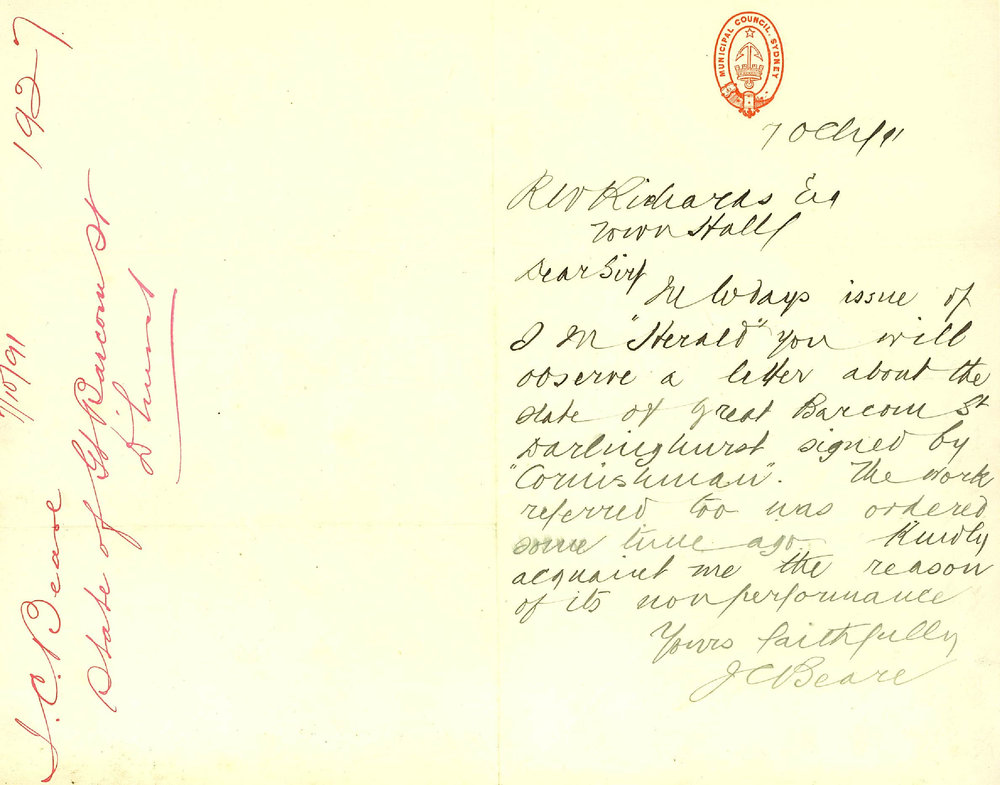 1927
7/10/91
J. C. Beare
State of Gt Barcom St
D'hurst
MUNICIPAL COUNCIL. SYDNEY
7 Oct/91
R W Richards Esq
Town Hall
Dear Sir
In todays issue of
S M "Herald" you will
observe a letter about the
state of Great Barcom St
Darlinghurst signed by
"Cornishman". The work
referred too was ordered
some time ago. Kindly
acquaint me the reason
of its non performance
Yours faithfully
J C Beare